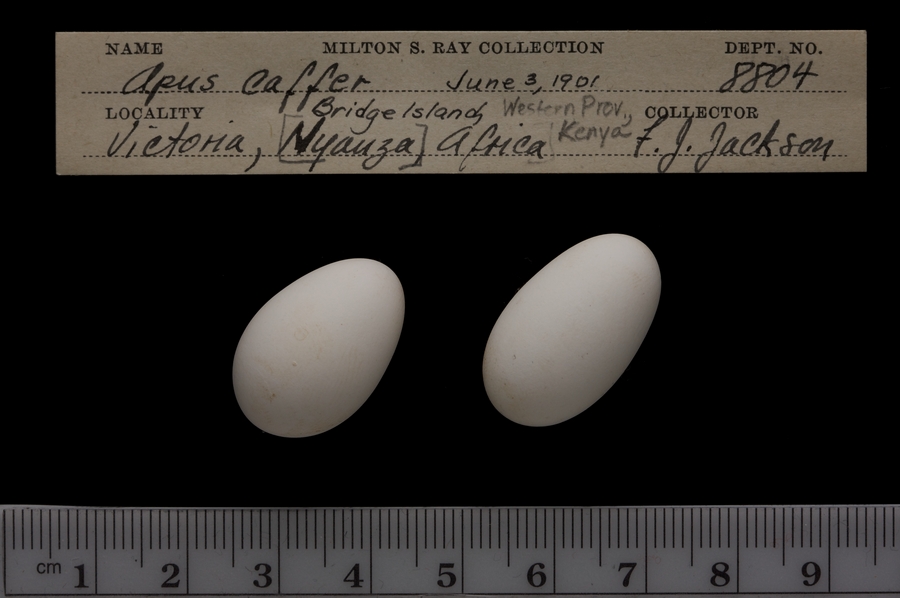 NAME MILTON S. RAY COLLECTION DEPT. NO.
Apus caffer June 3, 1901 8804
LOCALITY Bridge Island, Western Prov., COLLECTOR
Victoria, [Nyanza] Africa Kenya F. J. Jackson
cm 1 2 3 4 5 6 7 8 9